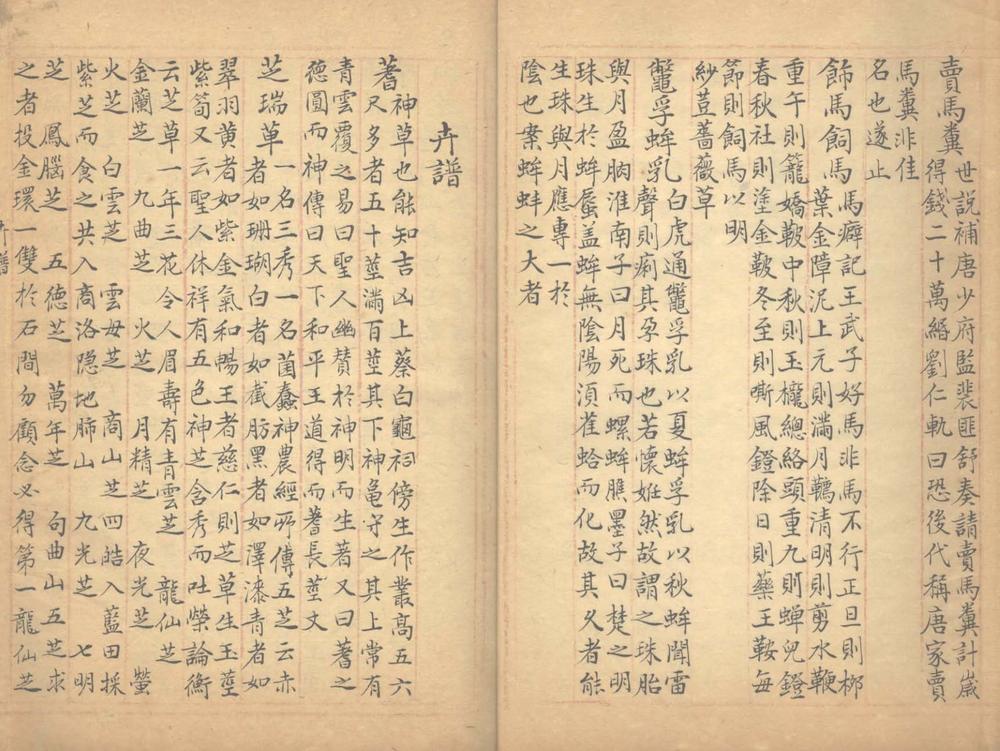 賣馬糞世說補唐少府監裴匪舒奏請賣馬糞計歲
得錢二十萬緡劉仁軌曰恐後代稱唐家賣
馬糞非佳
名也遂止
飾馬飼馬馬癖記王武子好馬非馬不行正旦則柳
葉金障泥上元則滿月韉清明則剪水鞭
重午則籠嬌鞁中秋則玉櫳總絡頭重九則蟬兒鐙
春秋社則塗金鞁冬至則嘶風鐙除日則藥王鞍每
節則飼馬以明
紗荳薔薇草
鼈孚蜯乳白虎通鼈孚乳以夏蜯孚乳以秋蜯聞雷
聲則痢其孕珠也若懷姙然故謂之珠胎
與月盈朒淮南子曰月死而螺蜯瞧墨子曰楚之明
珠生於蜯蜃盖蜯無陰陽湏雀蛤而化故其久者能
生珠與月應專一於
陰也案蜯蚌之大者
卉譜
蓍神草也能知吉凶上蔡白龜祠傍生作叢高五六
尺多者五十莖滿百莖其下神龜守之其上常有
青雲覆之易曰聖人幽賛於神明而生蓍又曰蓍之
德圓而神傳曰天下和平王道得而蓍長莖丈
芝瑞草一名三秀一名菌蠢神農經所傳五芝云赤
者如珊瑚白者如截肪黑者如澤漆青者如
翠羽黄者如紫金氣和暢王者慈仁則芝草生玉莖
紫筍又云聖人休祥有五色神芝含秀而吐榮論衡
云芝草一年三花令人眉壽有青雲芝 龍仙芝
金蘭芝 九曲芝 火芝 月精芝 夜光芝 螢
火芝 白雲芝 雲母芝 商山芝四皓入藍田採
紫芝而食之共入商洛隐地肺山 九光芝 七明
芝 鳳腦芝 五德芝 萬年芝 句曲山五芝求
之者投金環一雙於石間勿顧念必得第一龍仙芝